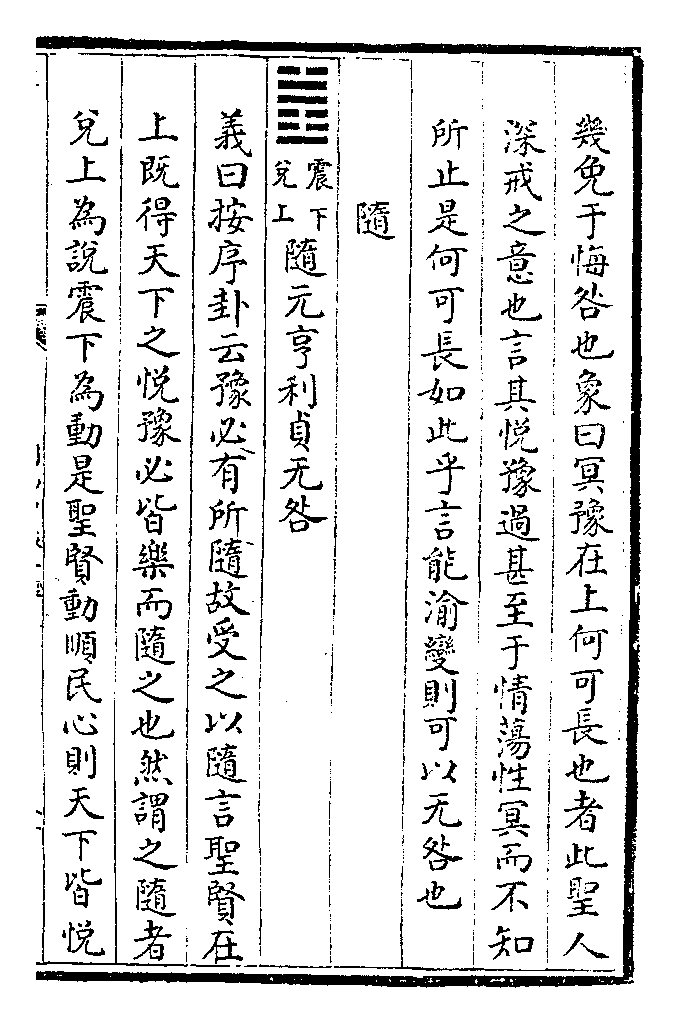 幾免于悔咎也象曰冥豫在上何可長也者此聖人
深戒之意也言其悅豫過甚至于情蕩性冥而不知
所止是何可長如此乎言能渝變則可以无咎也
隨
䷐
震下
兌上
隨元亨利貞无咎
義曰按序卦云豫必有所隨故受之以隨言聖賢在
上既得天下之悅豫必皆樂而隨之也然謂之隨者
兌上為說震下為動是聖賢動順民心則天下皆悅